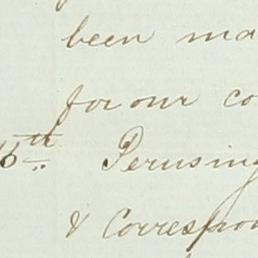 been ma
for our co
5th Perusing
& Correspon